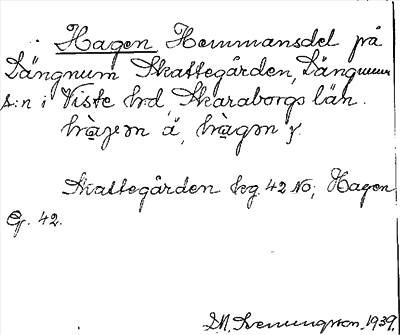 Hagen Hemmansdel på
Längnum Skattegården, Längnum
s:n i Viste hd Skaraborgs län.
hàgen ä, hàgm
Skattegården hg. 42 NO; Hagen
Gf. 42.
D.N. Svenungsson. 1939.